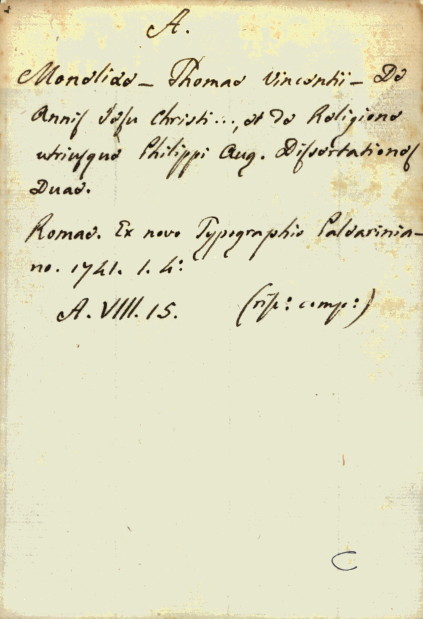 A.
Monelide – Thomae Vincentii – De
Annis Jesu Christi..., et de Religione
utriusque Philippi Aug. Dissertationes
Duae.
Romae. Ex novo Typographio Paleariniano
no. 1741. 1. 4:
A. VIII. 15. (risp: comp:)
C